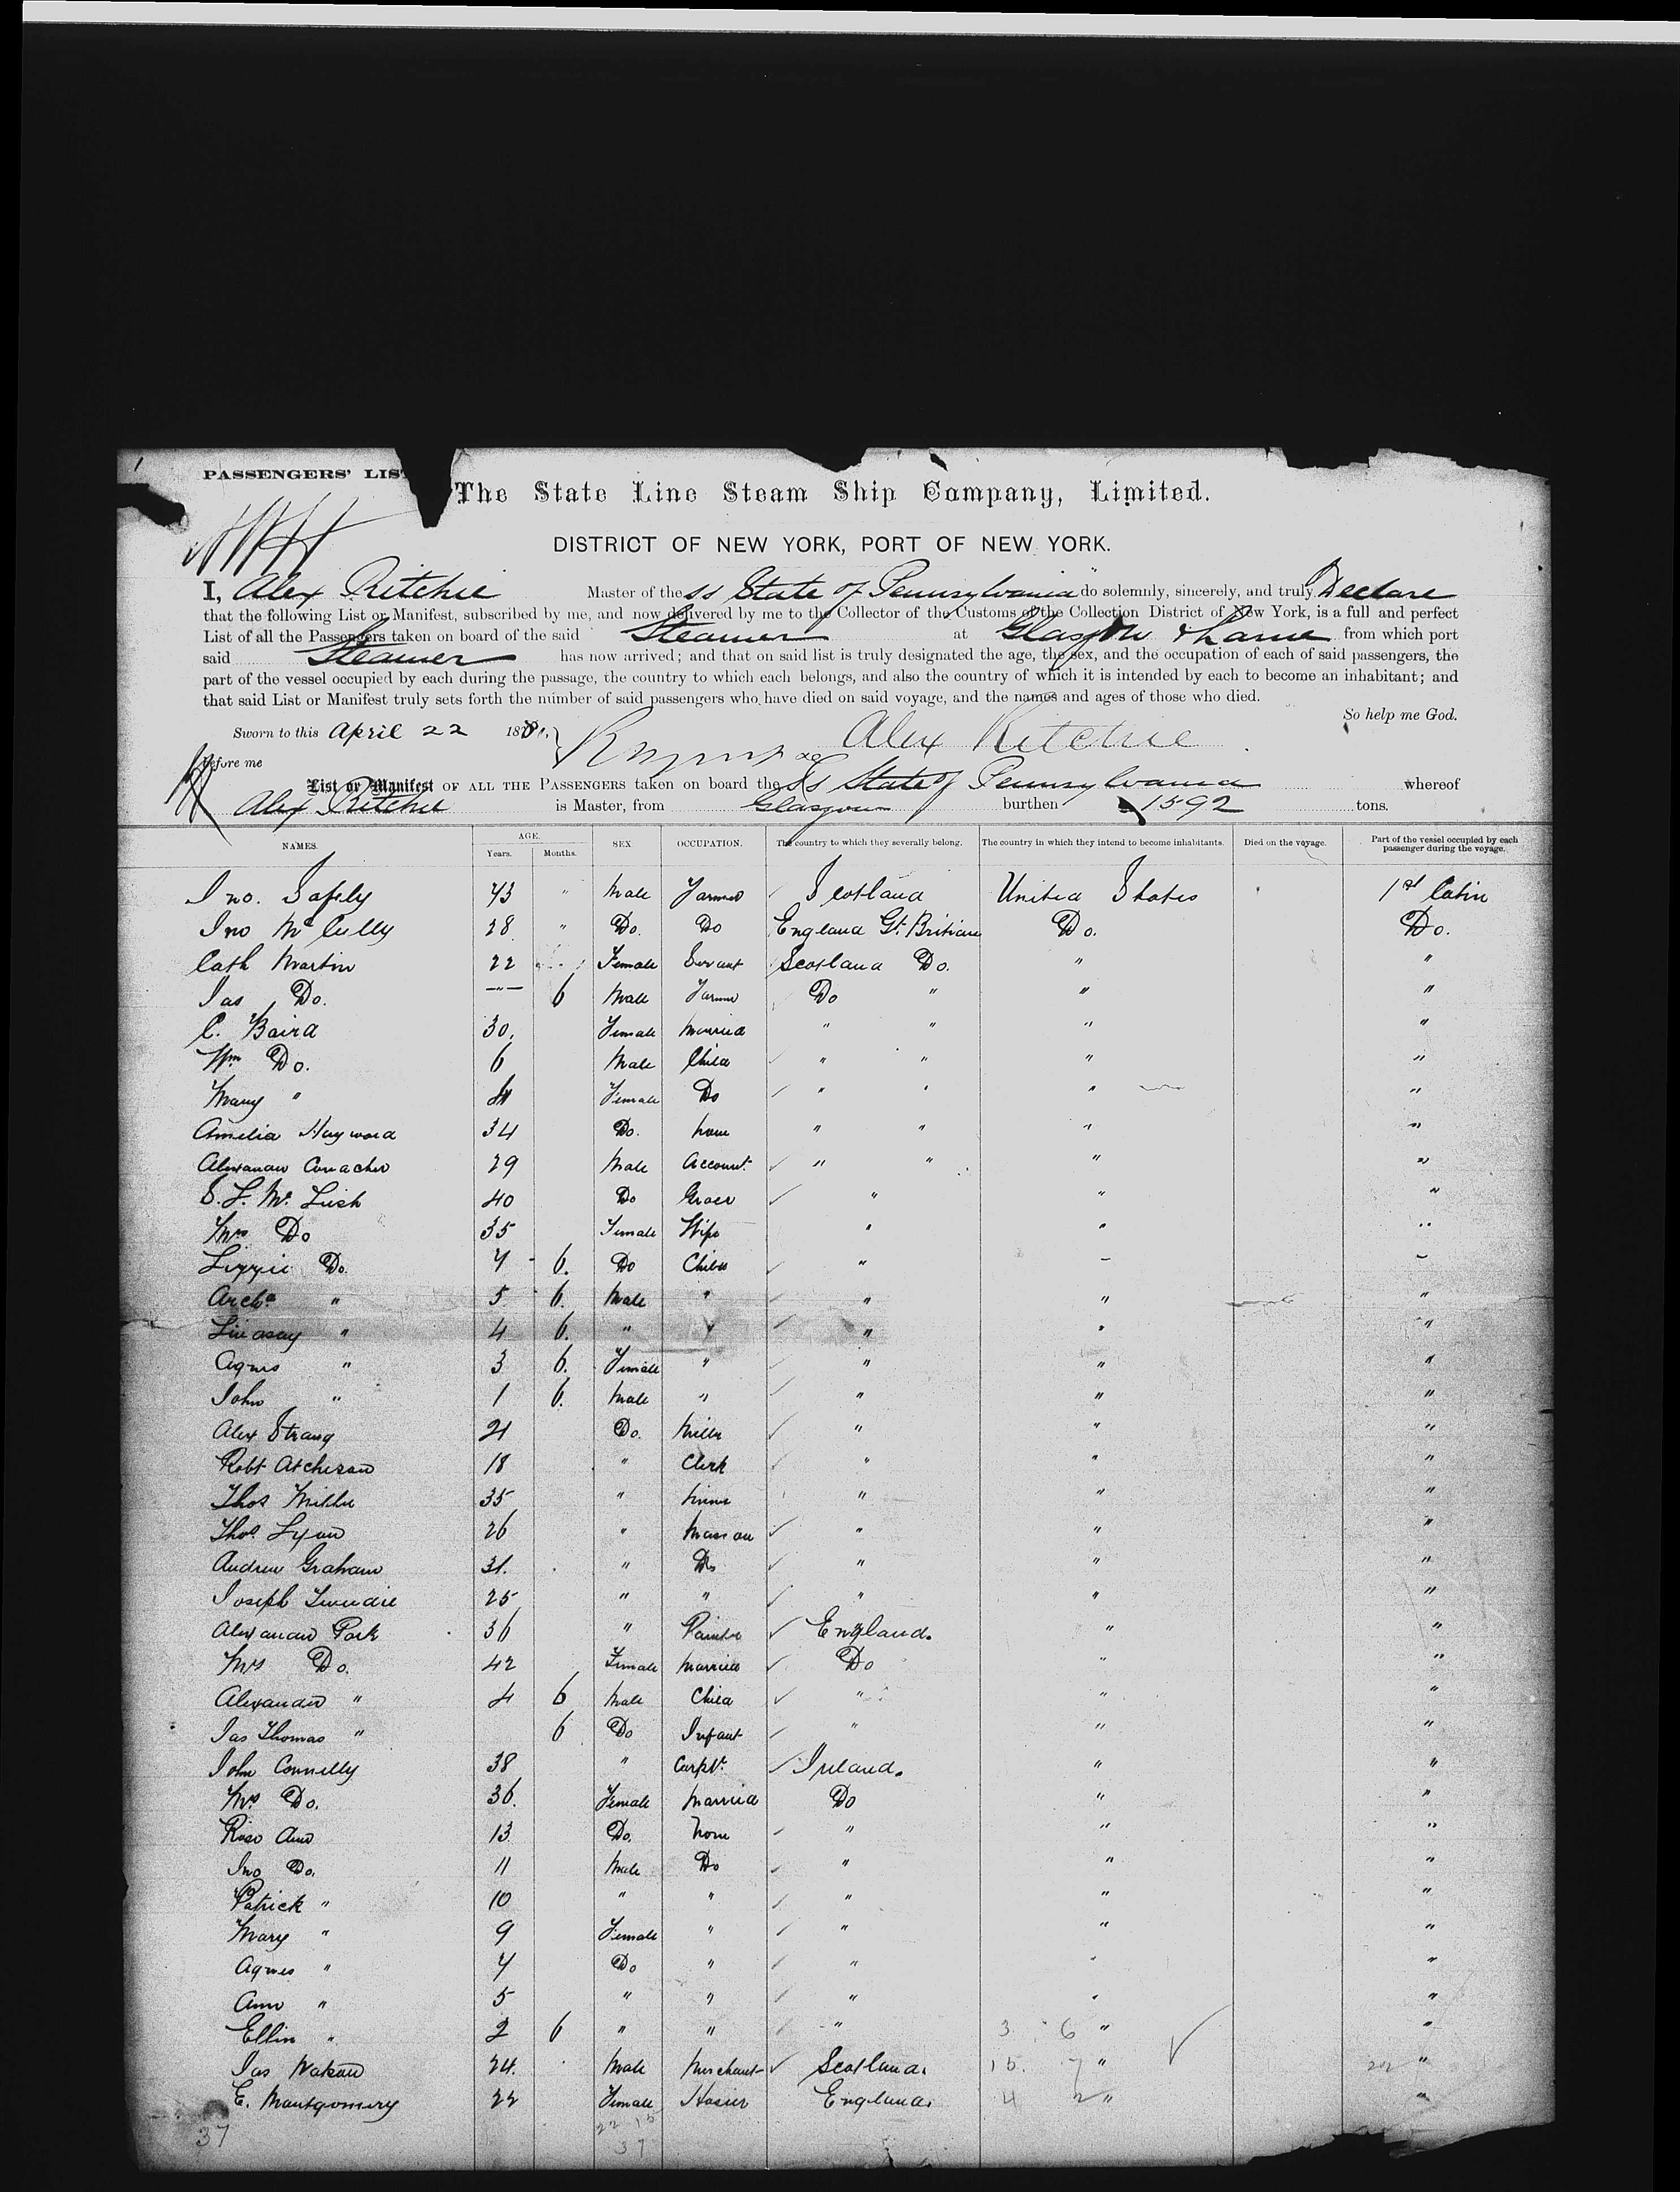 PASSENGERS' LIS
The State Line Steam Ship Company, Limited.
DISTRICT OF NEW YORK, PORT OF NEW YORK.
I, Alex Ritchie Master of the SS State of Pennsylvania do solemnly, sincerely, and truly Declare
that the following List or Manifest, subscribed by me, and now delivered by me to the Collector of the Customs of the Collection District of New York, is a full and perfect
List of all the Passengers taken on board of the said Steamer at Glasgow & Larne from which port
said Steamer has now arrived; and that on said list is truly designated the age, the sex, and the occupation of each of said passengers, the
part of the vessel occupied by each during the passage, the country to which each belongs, and also the country of which it is intended by each to become an inhabitant; and
that said List or Manifest truly sets forth the number of said passengers who have died on said voyage, and the names and ages of those who died.
So help me God.
Sworn to this April 22 188 Alex Ritchie
Before me
List or Manifest OF ALL THE PASSENGERS taken on board the SS State of Pennsylvania whereof
Alex Ritchie is Master, from Glasgow burthen 1592 tons.
NAMES. AGE. Years. Months. SEX OCCUPATION. The country to which they severally belong. The country in which they intend to become inhabitants. Died on the voyage. Part of the vessel occupied by each passenger during the voyage.
Jno. Safely 43 " Male Farmer Scotland United States 1st Cabin
Jno McCully 28 " Do. Do England Gt. Britian Do. Do.
Cath Martin 22 Female Servant Scotland Do. " "
Jas Do. —"— 6 Male Farmer Do " " "
C. Baird 30. Female Married " " " "
Wm Do. 6 Male Child " " " "
Mary " 4 Female Do " " " "
Amelia Hayward 34 Do. None " " " "
Alexander Conacher 29 Male Account. " " " "
S. L. Mc Lush 40 Do Grocer " " "
Mrs Do 35 Female Wife " " "
Lizzie Do. 7 6. Do Child " " "
Archd " 5 6. Male " " " "
Lindsay " 4 6. " " " " "
Agnes " 3 6. Female " " " "
John " 1 6. Male " " " "
Alex Strang 21 Do. Miller " " "
Robt Atcheson 18 " Clerk " " "
Thos Miller 35 " Miner " " "
Thos Lyon 26 " Mason " " "
Andrew Graham 31. " Do " " "
Joseph 25 " " " " "
Alexander Park 36 " Painter England. " "
Mrs Do. 42 Female Married Do " "
Alexander " 4 6 Male Child " " "
Jas Thomas " 6 Do Infant " " "
John Connelly 38 " Carptr. Ireland. " "
Mrs Do. 36. Female Married Do " "
Rose Ann 13 Do. None " " "
Jno Do. 11 Male Do " " "
Patrick " 10 " " " " "
Mary " 9 Female " " " "
Agnes " 7 Do " " " "
Ann " 5 " " " " "
Ellin " 2 6 " " " 3 6 " "
Jas Watson 24. Male Merchant Scotland. 15. 7 " 22 "
E. Montgomery 22 Female Hosier England. 4 2 " "
37 22 15
37